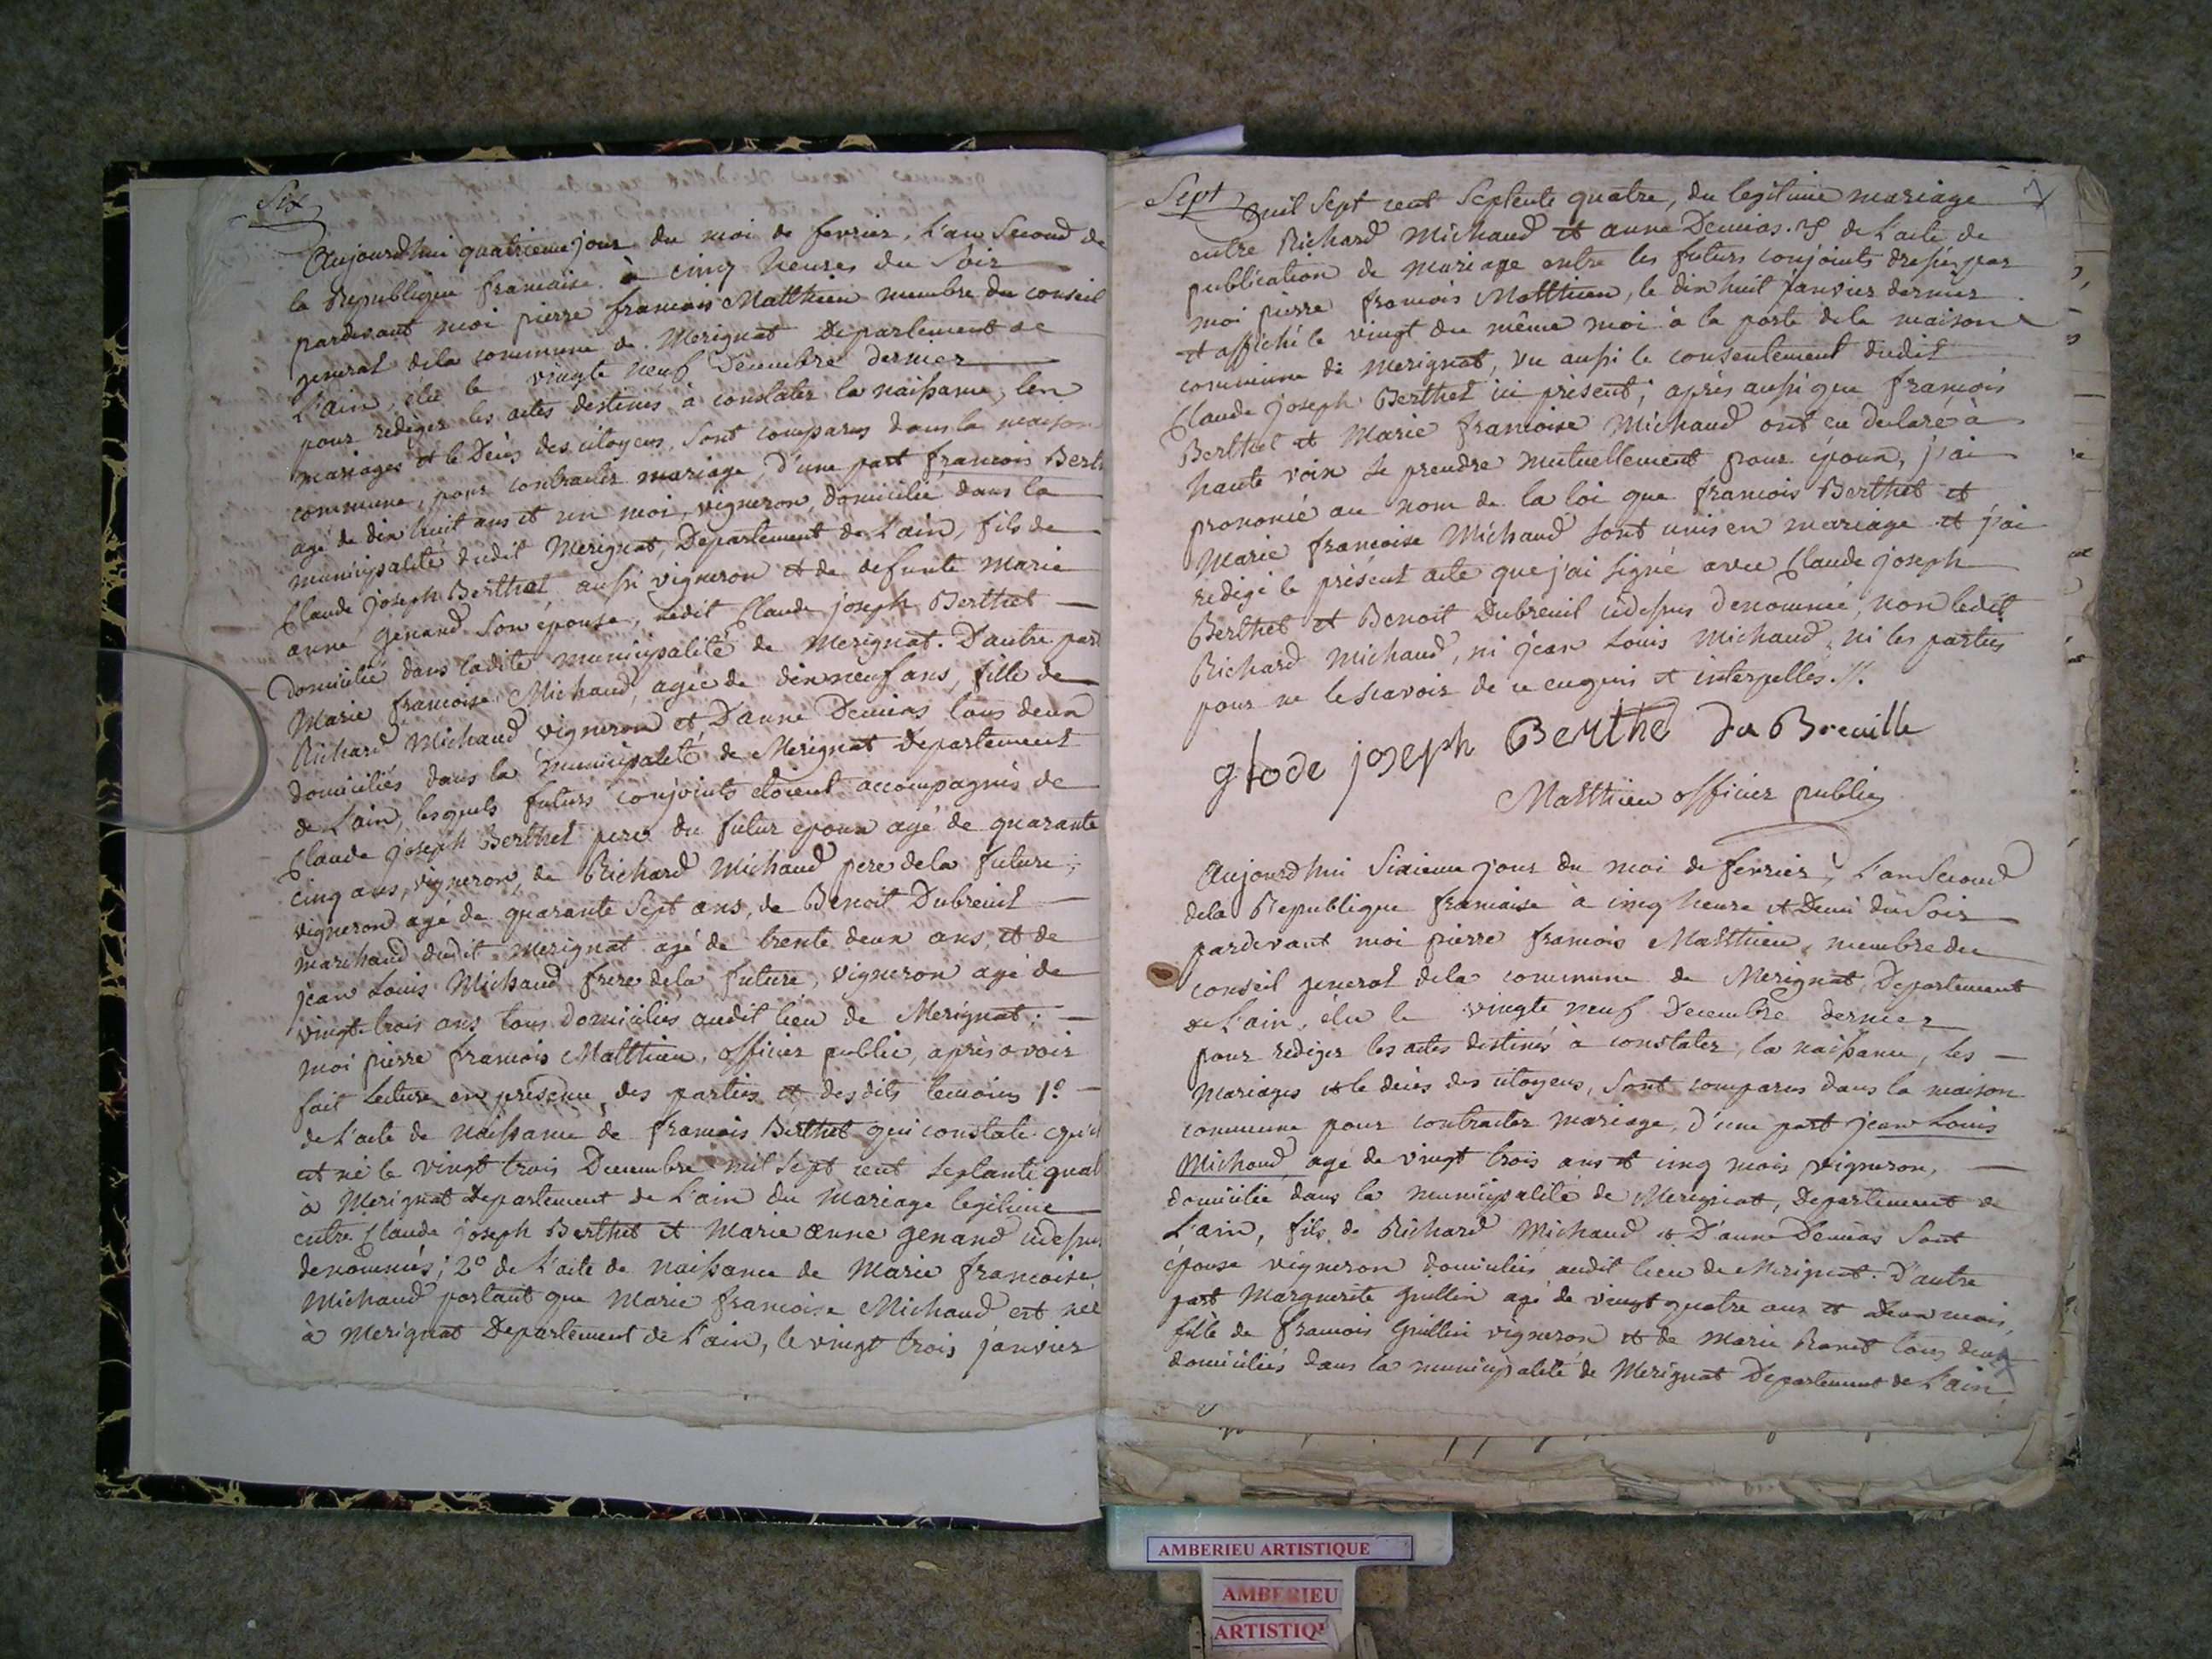 Six
Aujourd'hui quatrieme jour du moi de fevrier, L'an Second de
la Republique francaise à cinq heures du Soir
pardevant moi pierre francois Matthieu membre du conseil
general dela commune de Merignat Departement de
L'ain, élu le vingte neuf Decembre dernier
pour rediger les actes destinés à constater la naissance, les
mariages et le Décès des citoyens, Sont comparus dans la maison
commune, pour contracter mariage, D'une part francois Berth
agé de dix huit ans et un moi, vigneron, domicilié dans la
municipalité dudit Merignat, Departement de L'ain, fils de
Claude joseph Berthet aussi vigneron et de defunte Marie
anne genand Son epouse, ledit Claude joseph Berthet
Domicilié dans ladite municipalité de Merignat. D'autre part
Marie francoise Michaud, agée de dix neuf ans, fille de
Richard Michaud vigneron et D'anne Demias tous deux
domiciliés dans la municipalité de Merignat Departement
de L'ain, lesquels futurs conjoints etoient accompagnés de
Claude joseph Berthet pere du futur epoux agé de quarante
cinq ans, vigneron, de Richard Michaud pere dela future,
vigneron agé de quarante Sept ans, de Benoit Dubreuil
marchand dudit Merignat agé de trente deux ans, et de
jean Louis Michaud frere dela future, vigneron agé de
vingt trois ans tous Domiciliés audit lieu de Merignat.
moi pierre francois Matthieu, officier public, après avoir
fait Lecture en présence des parties et desdits temoins 1.º
de L'acte de naissance de francois Berthet qui constate qu'il
est né le vingt trois Decembre mil Sept cent Septante quat
à Merignat Departement de L'ain du Mariage legitime
entre Claude joseph Berthet et Marie anne genand cidessus
denommés; 2º de L'acte de naissance de Marie francoise
Michaud portant que Marie francoise Michaud est née
à Merignat Departement de L'ain, le vingt trois janvier
Sept
7
mil Sept cent Septente quatre, du legitime mariage
entre Richard Michaud et anne Demias. 3º de L'acte de
publication de mariage entre les futurs conjoints dressés par
moi pierre francois Matthieu, le dix huit janvier dernier
et affiché le vingt du même moi à la porte dela maison
commune de Merignat, vu aussi le consentement dudit
Claude joseph Berthet ici présent; après aussi que françois
Berthet et Marie francoise Michaud ont eu declaré à
haute voix se prendre mutuellement pour époux, j'ai
prononcé au nom de la loi que francois Berthet et
Marie francoise Michaud Sont unis en mariage et j'ai
redigé le présent acte que j'ai signé avec Claude joseph
Berthet et Benoit Dubreuil cidessus denommé, non ledit
Richard Michaud, ni jean Louis Michaud, ni les parties
pour ne le scavoir de ce enquis et interpellés.//.
glode joseph Berthe du Breuille
Matthieu officier public
Aujourd'hui Sixieme jour du moi de fevrier, L'an Second
dela Republique francaise à cinq heure et Demi du Soir
pardevant moi pierre francois Matthieu, membre du
conseil general dela commune de Merignat, Departement
de L'ain, élu le vingte neuf Decembre dernier
pour rediger les actes destinés à constater, la naissance, les
Mariages et le décès des citoyens, Sont comparus dans la maison
commune pour contracter mariage, D'une part jean Louis
Michaud agé de vingt trois ans et cinq mois, vigneron,
domicilié dans la municipalité de Merignat, Departement de
L'ain, fils de Richard Michaud et D'anne Demias Sont
épouse vigneron domiciliés audit lieu de Merignat. D'autre
part Marguerite Grillin agé de vingt quatre ans et deux mois,
fille de francois Grillin vigneron et de Marie tous deux
domiciliés dans la municipalité de Merignat Departement de L'ain,
AMBERIEU ARTISTIQUE
AMBERIEU
ARTISTIQ